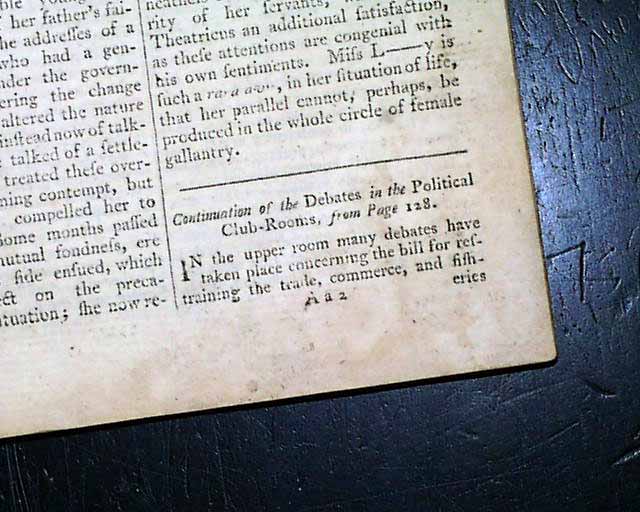 her father's fai-
he addresses of a
who had a gen-
nder the govern-
ering the change
altered the nature
instead now of talk-
talked of a settle-
treated these over-
ning contempt, but
compelled her to
some months passed
mutual fondness, ere
side ensued, which
ect on the preca-
tuation; she now re-
rity of her servants,
Theatricus an additional satisfaction,
as these attentions are congenial with
his own sentiments. Miss L——y is
such a rara avis, in her situation of life,
that her parallel cannot, perhaps, be
produced in the whole circle of female
gallantry.
Continuation of the Debates in the Political
Club-Rooms, from Page 128.
IN the upper room many debates have
taken place concerning the bill for res-
training the trade, commerce, and fish-
A a 2 eries